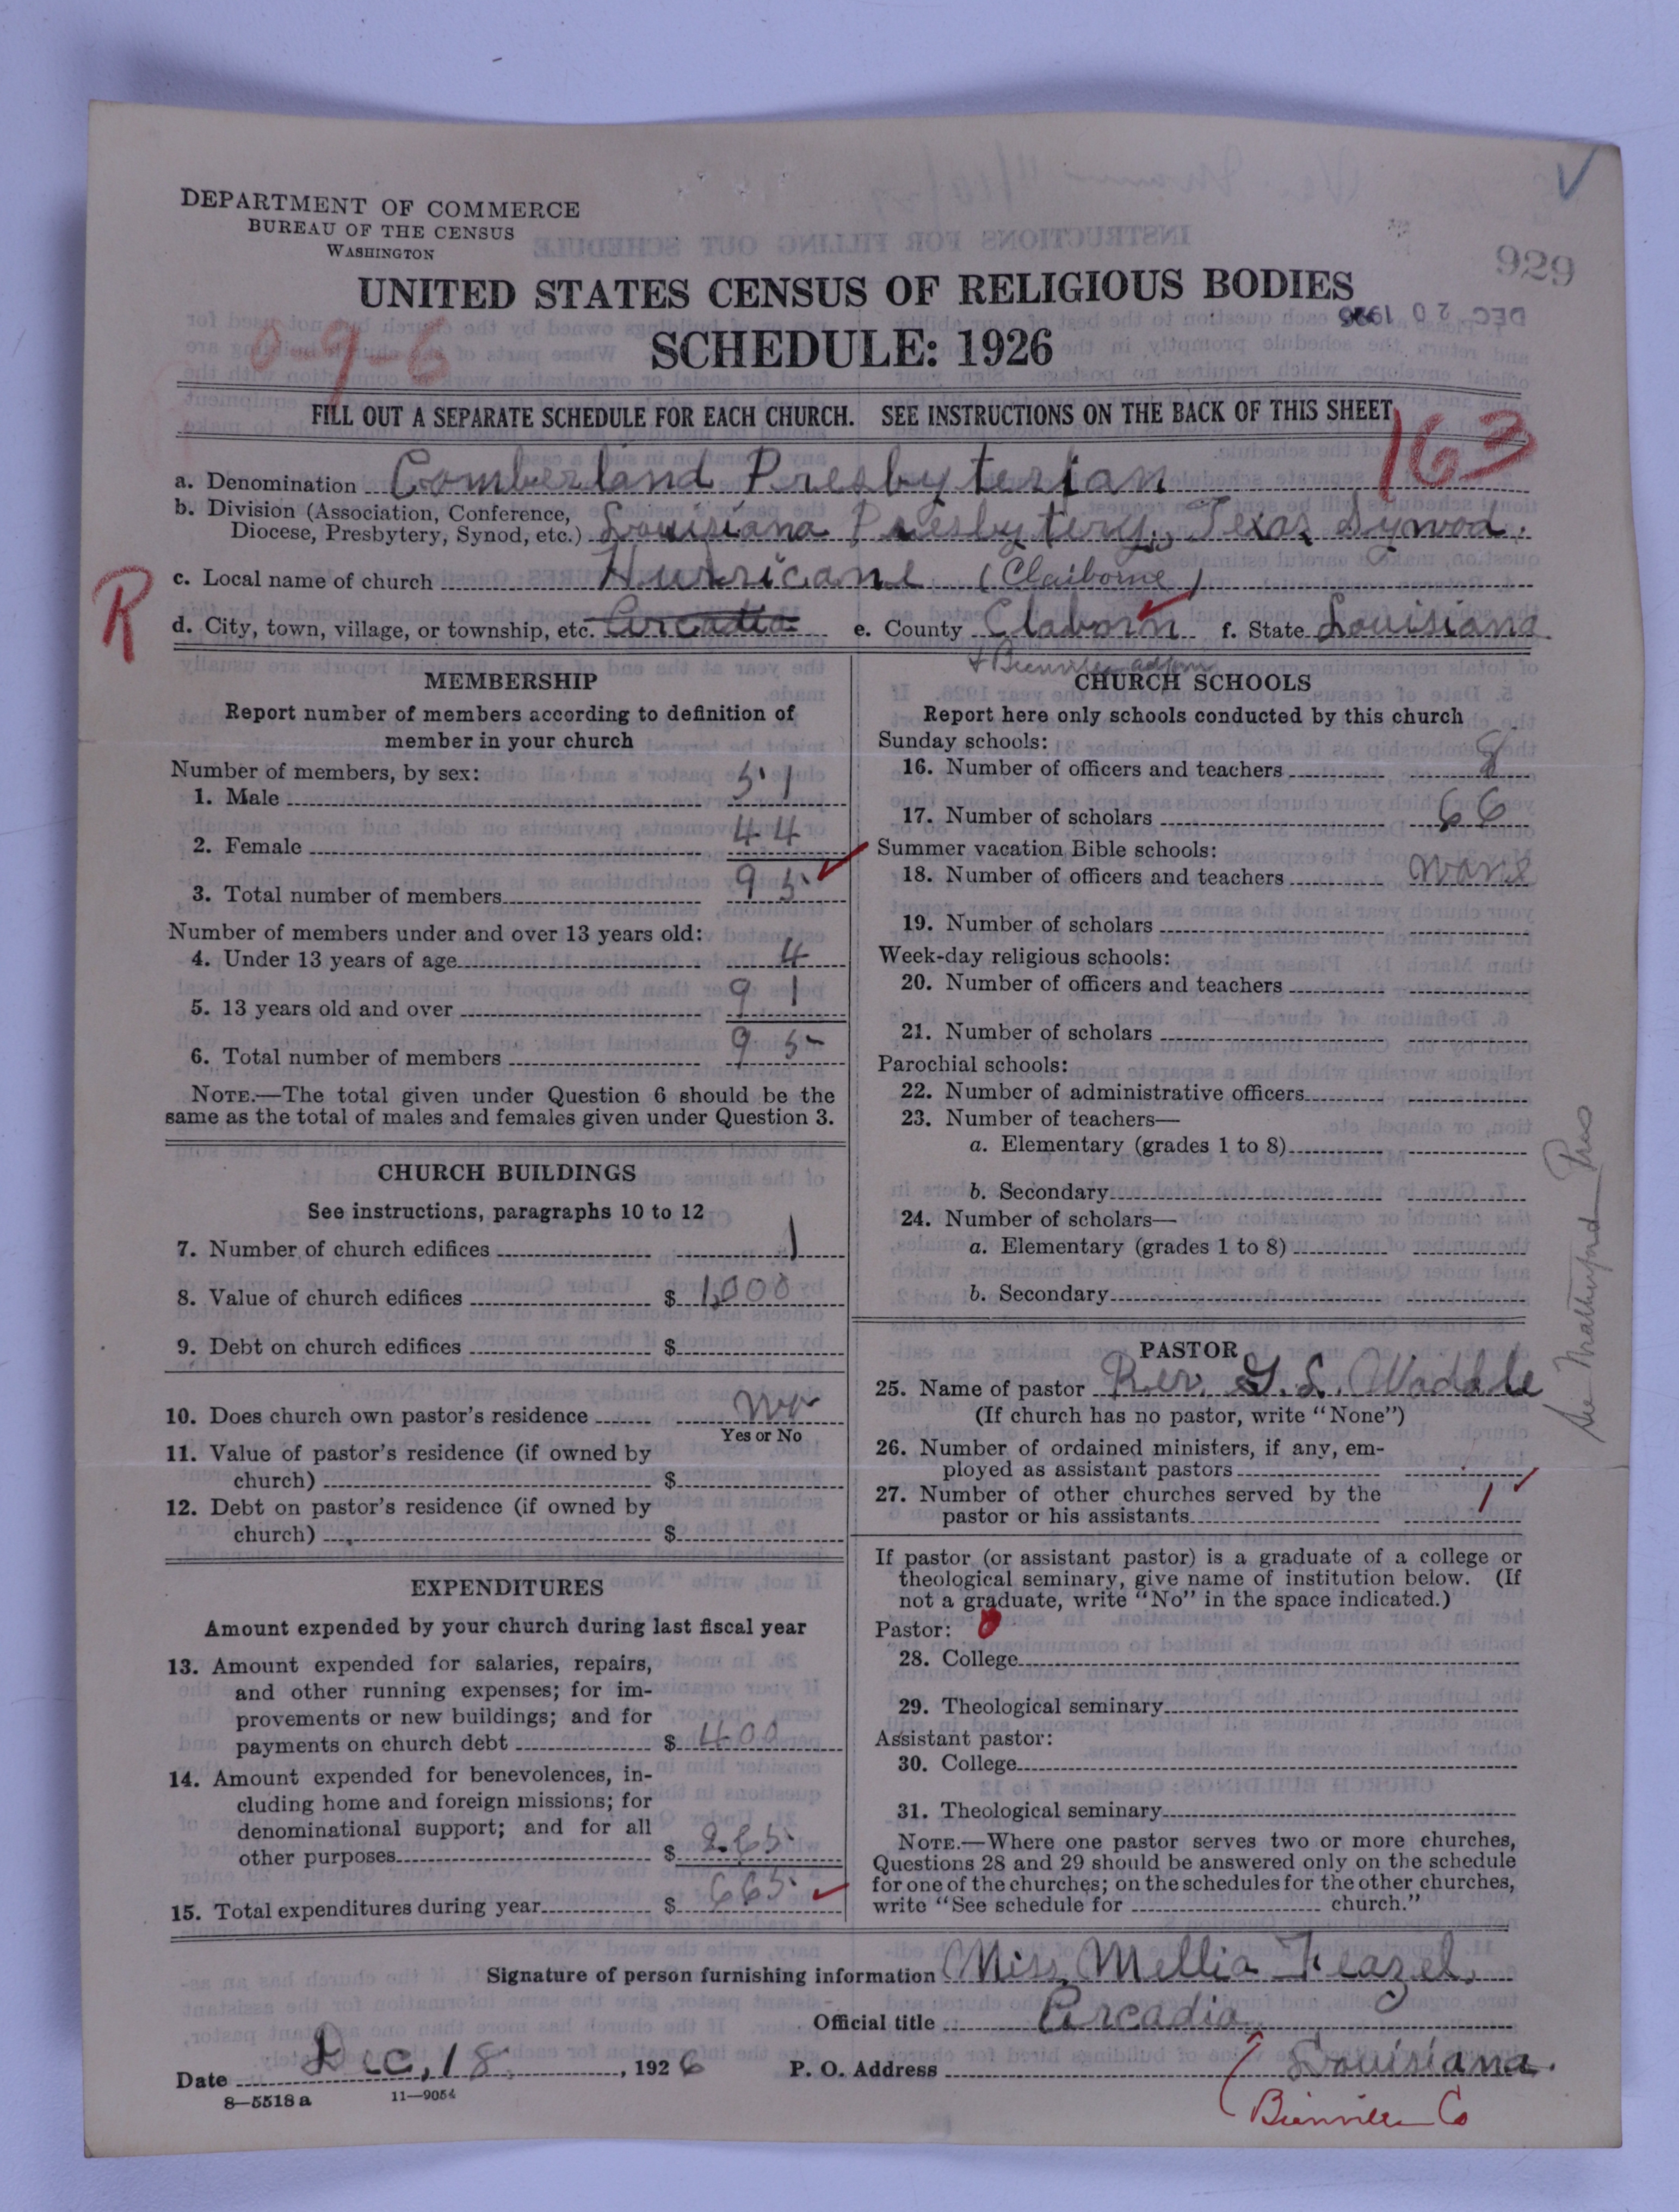 DEPARTMENT OF COMMERCE
BUREAU OF THE CENSUS
WASHINGTON
929
UNITED STATES CENSUS OF RELIGIOUS BODIES
DEC 20 1926
SCHEDULE: 1926
0-9-6
FILL OUT A SEPARATE SCHEDULE FOR EACH CHURCH. SEE INSTRUCTIONS ON THE BACK OF THIS SHEET
163
a. Denomination Comberland Presbyterian
b. Division (Association, Conference,
Diocese, Presbytery, Synod, etc.) Louisiana Presbytery, Texas Synod.
c. Local name of church Hurricane (Claiborne)
R
d. City, town, village, or township, etc. Arcadia e. County Claborn f. State Louisiana
+ Bienville adjoin
MEMBERSHIP
Report number of members according to definition of
member in your church
Number of members, by sex:
1. Male 51
2. Female 44
3. Total number of members 95
Number of members under and over 13 years old:
4. Under 13 years of age 4
5. 13 years old and over 91
6. Total number of members 95
NOTE.—The total given under Question 6 should be the
same as the total of males and females given under Question 3.
CHURCH BUILDINGS
See instructions, paragraphs 10 to 12
7. Number of church edifices 1
8. Value of church edifices $ 1,000
9. Debt on church edifices $
10. Does church own pastor's residence No
Yes or No
11. Value of pastor's residence (if owned by
church) $
12. Debt on pastor's residence (if owned by
church) $
EXPENDITURES
Amount expended by your church during last fiscal year
13. Amount expended for salaries, repairs,
and other running expenses; for im-
provements or new buildings; and for
payments on church debt $ 400
14. Amount expended for benevolences, in-
cluding home and foreign missions; for
denominational support; and for all
other purposes $ 265
15. Total expenditures during year $ 665
CHURCH SCHOOLS
Report here only schools conducted by this church
Sunday schools:
16. Number of officers and teachers 8
17. Number of scholars 66
Summer vacation Bible schools:
18. Number of officers and teachers none
19. Number of scholars
Week-day religious schools:
20. Number of officers and teachers
21. Number of scholars
Parochial schools:
22. Number of administrative officers
23. Number of teachers—
a. Elementary (grades 1 to 8)
b. Secondary
24. Number of scholars—
a. Elementary (grades 1 to 8)
b. Secondary
PASTOR
25. Name of pastor Rev. G. L. Waddle
(If church has no pastor, write "None")
26. Number of ordained ministers, if any, em-
ployed as assistant pastors
27. Number of other churches served by the
pastor or his assistants 1
If pastor (or assistant pastor) is a graduate of a college or
theological seminary, give name of institution below. (If
not a graduate, write "No" in the space indicated.)
Pastor: 0
28. College
29. Theological seminary
Assistant pastor:
30. College
31. Theological seminary
NOTE.—Where one pastor serves two or more churches,
Questions 28 and 29 should be answered only on the schedule
for one of the churches; on the schedules for the other churches,
write "See schedule for church."
Signature of person furnishing information Miss, Mellia Feazel.
Official title Arcadia
Date Dec, 18, 1926 P. O. Address Louisiana.
8—5518 a 11—9054
Bienville Co